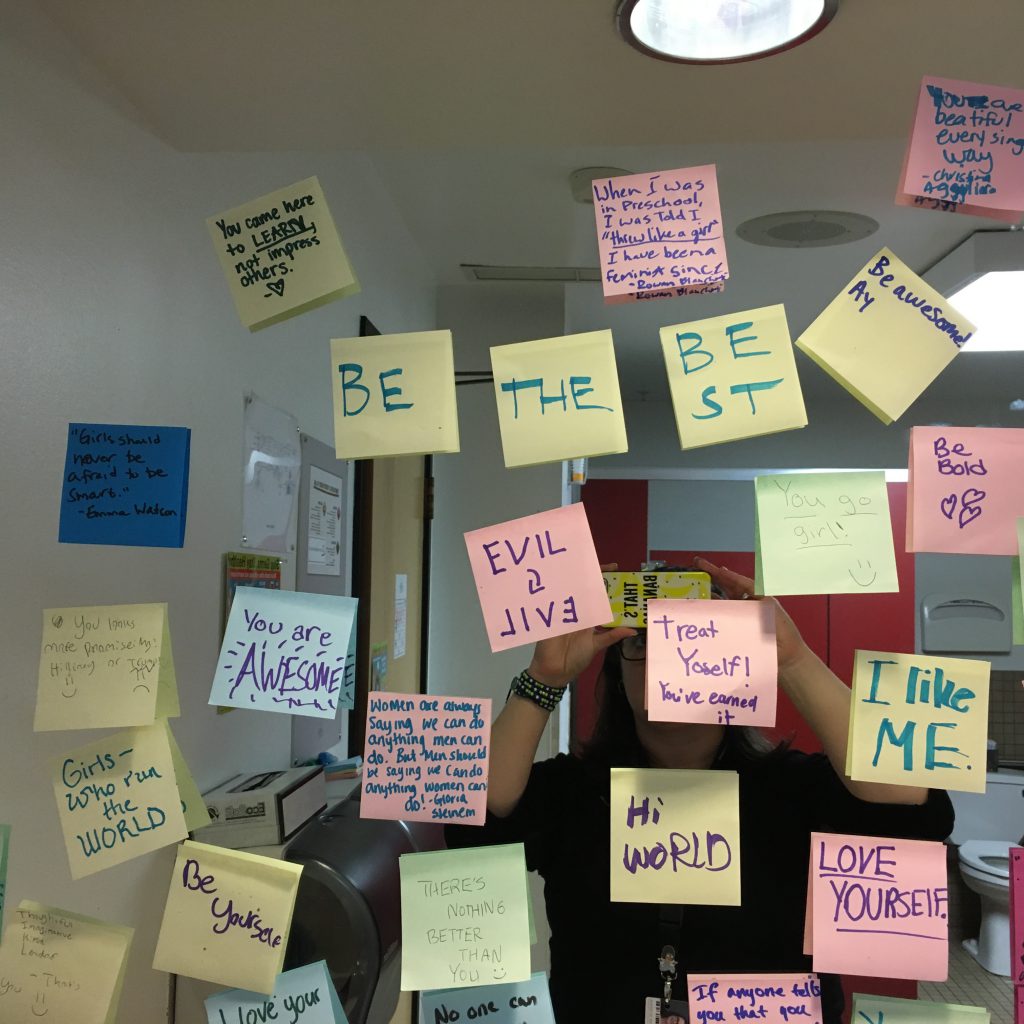 You are
beatiful
every sing
way
- Christina
You came here
to LEARN,
not impress
others.
When I was
in Preschool,
I was Told I
"threw like a girl"
I have been a
feminist since
- Rowan Blanchard
Be awesome!
Ay
BE
THE
BE
ST
"Girls should
never be
afraid to be
smart."
- Emma Watson
Be
Bold
You go
girl!
EVIL
LIVE
BAN
THAT'S
You
more
or
You are
AWESOME
Treat
Yoself!
You've earned
it
I like
ME.
Women are always
Saying we can do
anything men can
do. But Men should
be saying we can do
anything women can
do! - Gloria
Steinem
Girls -
who run
the
WORLD
Hi
WORLD
LOVE
YOURSELF.
Be
Yourself
THERE'S
NOTHING
BETTER
THAN
YOU
Thoughtful
Imaginative
Kind
Leader
You - That's
I love your
No one can
If anyone tells
you that you